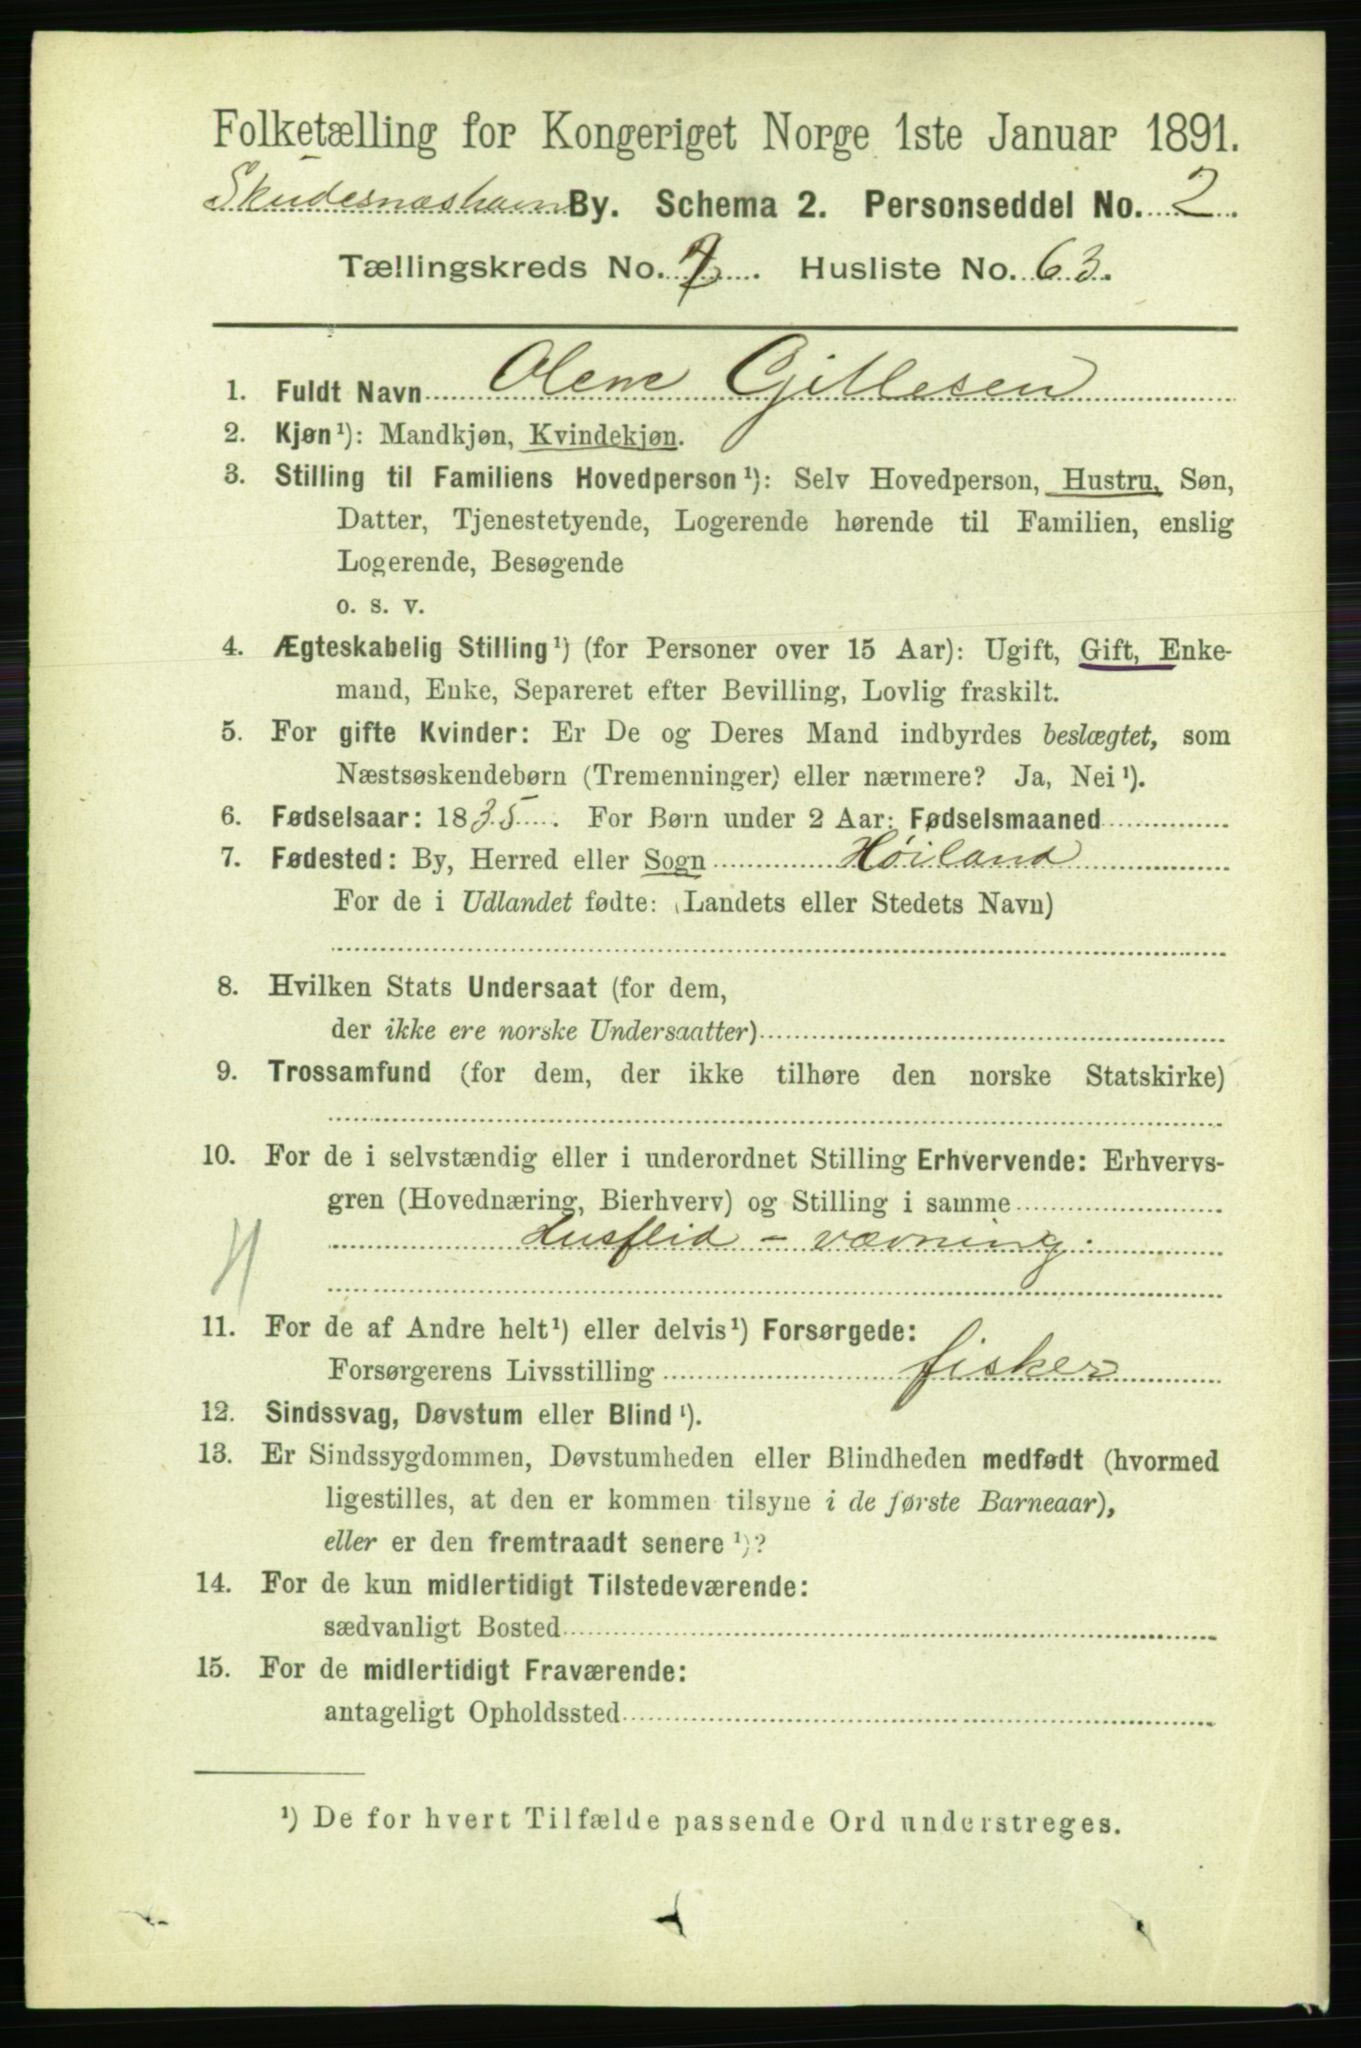 Folketælling for Kongeriget Norge 1ste Januar 1891.
Skudesnæshavn By. Schema 2. Personseddel No. 2.
Tællingskreds No. 2. Husliste No. 63.
1. Fuldt Navn Olene Gjillesen
2. Kjøn¹): Mandkjøn, Kvindekjøn.
3. Stilling til Familiens Hovedperson¹): Selv Hovedperson, Hustru, Søn,
Datter, Tjenestetyende, Logerende hørende til Familien, enslig
Logerende, Besøgende
o. s. v.
4. Ægteskabelig Stilling¹) (for Personer over 15 Aar): Ugift, Gift, Enke-
mand, Enke, Separeret efter Bevilling, Lovlig fraskilt.
5. For gifte Kvinder: Er De og Deres Mand indbyrdes beslægtet, som
Næstsøskendebørn (Tremenninger) eller nærmere? Ja, Nei¹).
6. Fødselsaar: 1835. For Børn under 2 Aar: Fødselsmaaned
7. Fødested: By, Herred eller Sogn Høiland
For de i Udlandet fødte: (Landets eller Stedets Navn)
8. Hvilken Stats Undersaat (for dem,
der ikke ere norske Undersaatter)
9. Trossamfund (for dem, der ikke tilhøre den norske Statskirke)
10. For de i selvstændig eller i underordnet Stilling Erhvervende: Erhvervs-
gren (Hovednæring, Bierhverv) og Stilling i samme
Husflid - vævning.
11. For de af Andre helt¹) eller delvis¹) Forsørgede:
Forsørgerens Livsstilling fisker
12. Sindssvag, Døvstum eller Blind¹).
13. Er Sindssygdommen, Døvstumheden eller Blindheden medfødt (hvormed
ligestilles, at den er kommen tilsyne i de første Barneaar),
eller er den fremtraadt senere¹)?
14. For de kun midlertidigt Tilstedeværende:
sædvanligt Bosted
15. For de midlertidigt Fraværende:
antageligt Opholdssted
¹) De for hvert Tilfælde passende Ord understreges.